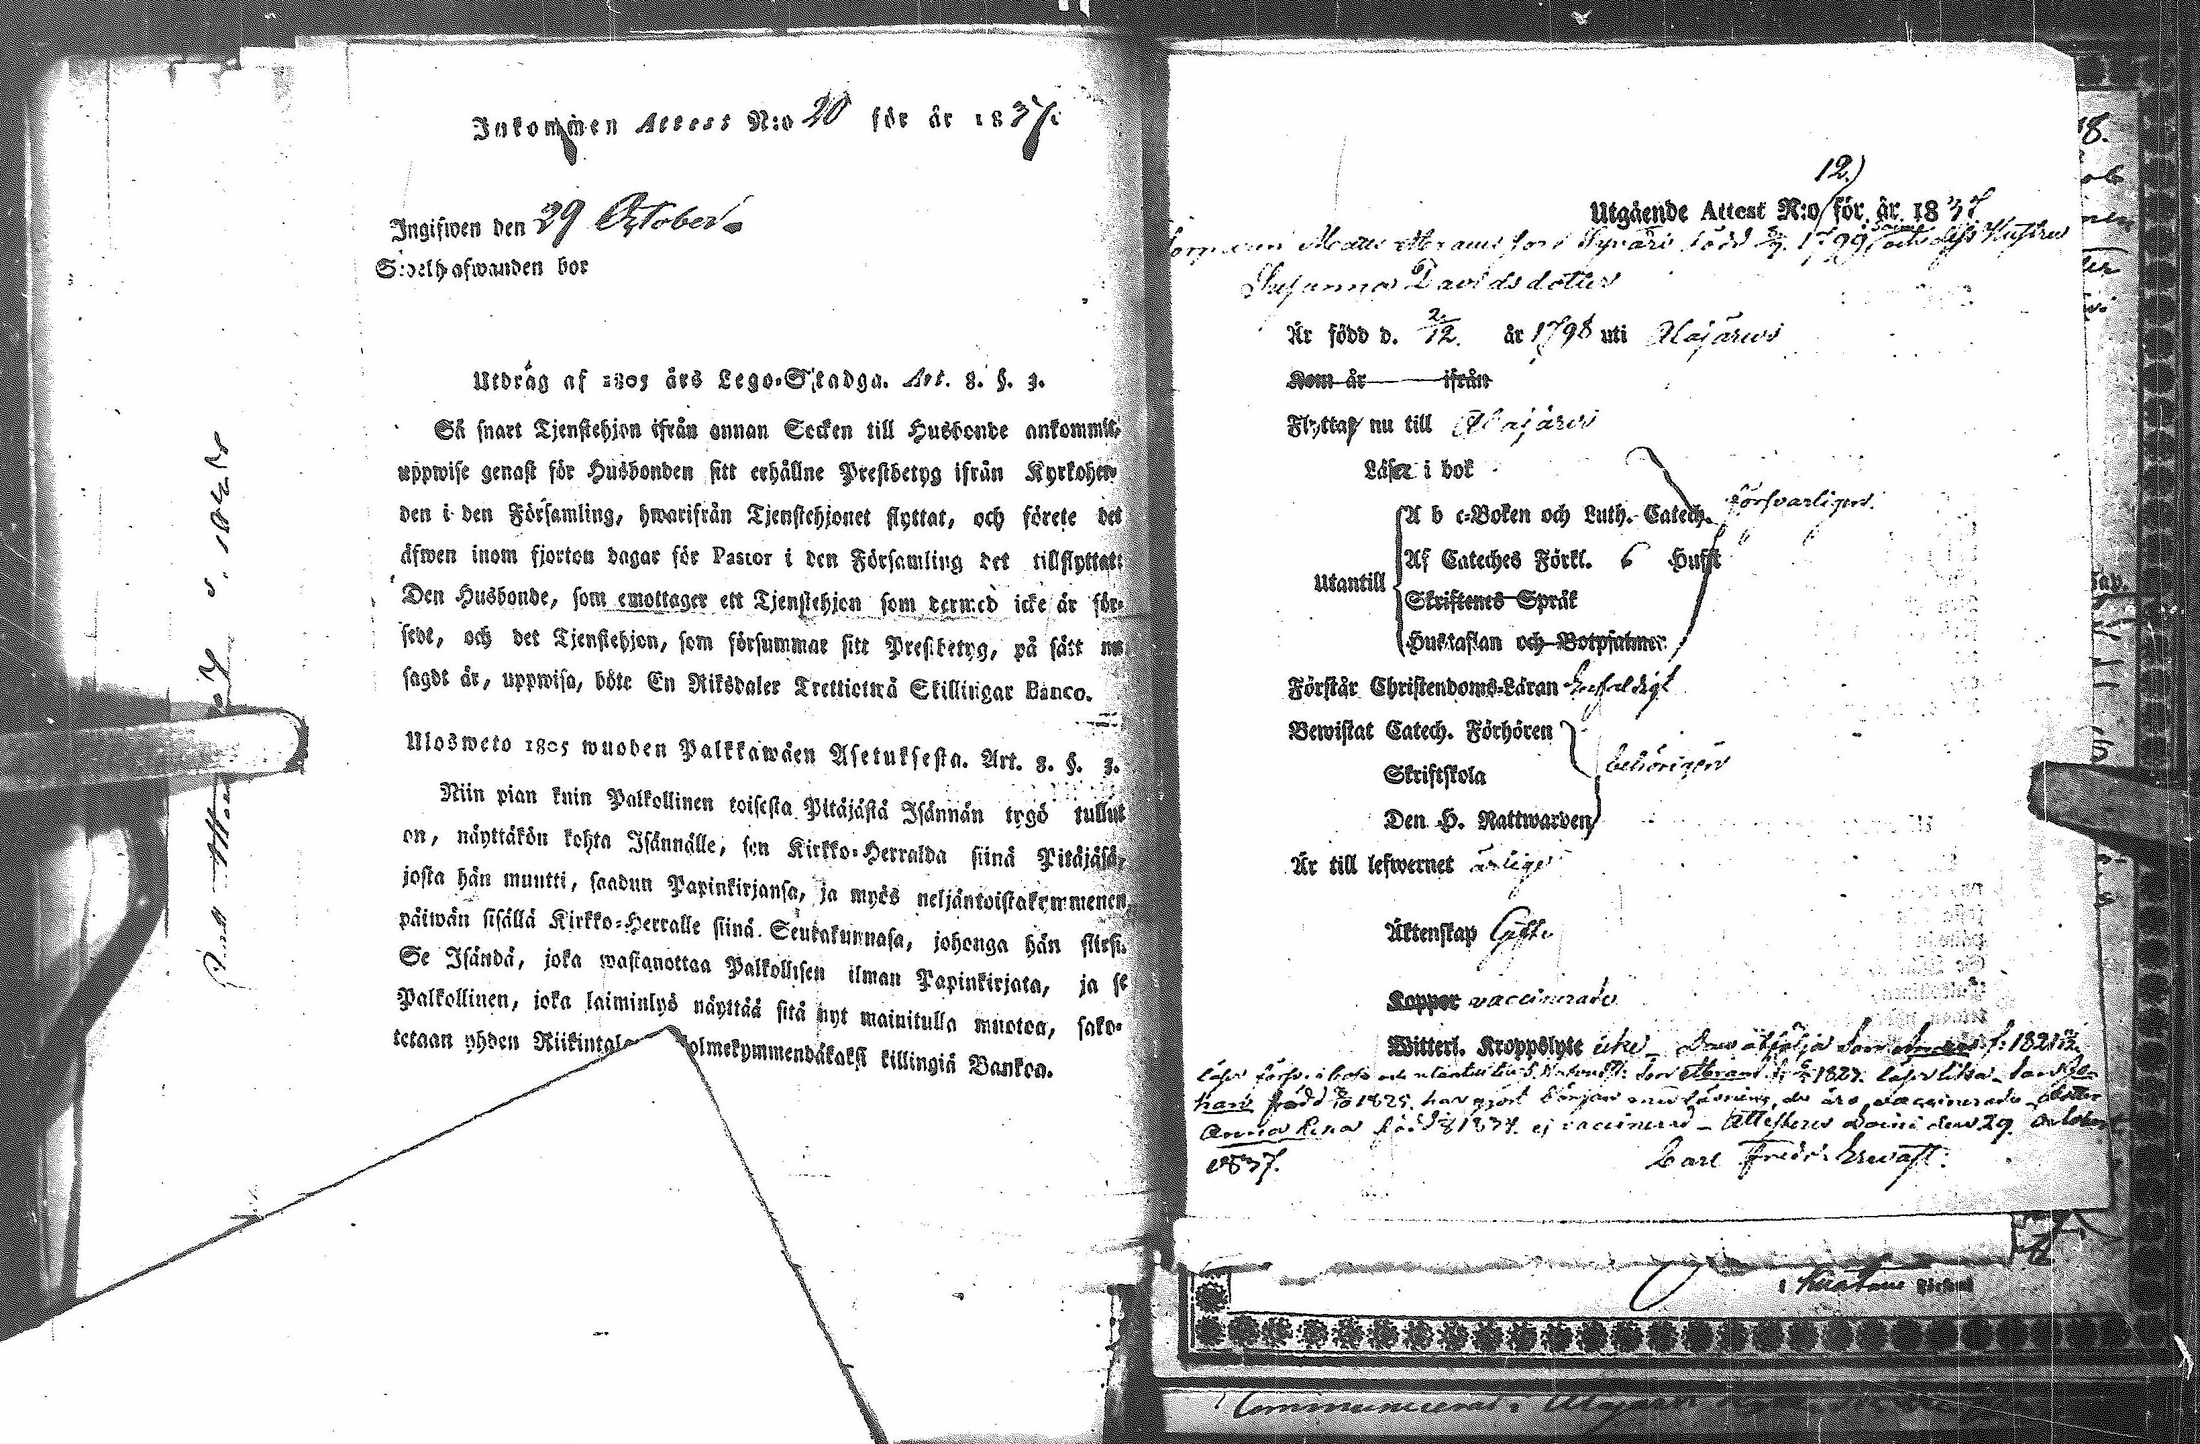 Inkommen Attest N:o 20 för år 1837.
Ingifwen den 29 October.
Innehafwanden bor
Utdrag af 1805 års Lego-Stadga. Art. 8. §. 3.
Så snart Tjenstehjon ifrån annan Socken till Husbonde ankommit,
uppwise genast för Husbonden sitt erhållne Prestbetyg ifrån Kyrkoher-
den i den Församling, hwarifrån Tjenstehjonet flyttat, och förete det
äfwen inom fjorton dagar för Pastor i den Församling det tillflyttat:
Den Husbonde, som emottager ett Tjenstehjon som dermed icke är för-
sedt, och det Tjenstehjon, som försummar sitt Prestbetyg, på sätt nu
sagdt är, uppwisa, böte En Riksdaler Trettiotwå Skillingar Banco.
Ulosweto 1805 wuoden Palkkawäen Asetuksesta. Art. 8. §. 3.
Niin pian kuin Palkollinen toisesta Pitäjästä Isännän tygö tullut
on, näyttäkön kohta Isännälle, sen Kirkko-Herralda siinä Pitäjäsä,
josta hän muutti, saadun Papinkirjansa, ja myös neljäntoistakymmenen
päiwän sisällä Kirkko-Herralle siinä Seurakunnasa, johonga hän siirsi.
Se Isändä, joka wastanottaa Palkollisen ilman Papinkirjata, ja se
Palkollinen, joka laiminlyö näyttää sitä nyt mainitulla muotoa, sako-
tetaan yhden Riikintal olmekymmendäkaksi killingiä Bankoa.
12.)
Utgående Attest N:o för år 1837
Matts Abramsson född 1799 Hustru
Susanna Davidsdotter
Är född d. 2/12. år 1798 uti Alajärvi
Kom år ifrån
Flyttar nu till Alajärvi
Läser i bok
A b c-Boken och Luth. Catech. försvarligen.
Utantill
Af Cateches Förkl. 6 Hufst
Skriftenes Språk
Hustaflan och Botpsalmer
Förstår Christendoms-Läran Enfaldigt
Bewistat Catech. Förhören
Skriftskola behörigen
Den H. Nattwarden
Är till lefwernet ärlige
Äktenskap Gifte
Koppor vaccinerade
Witterl. Kroppslyte icke Son f. 1821
Son Abram 1823. läser lika
född 1825. har gjort början läsning, de äro vaccinerade dotter
Anna född 1837. ej vaccinerad – Attesteras den 29. October
1837. Carl Fredr.
i
Communicerat